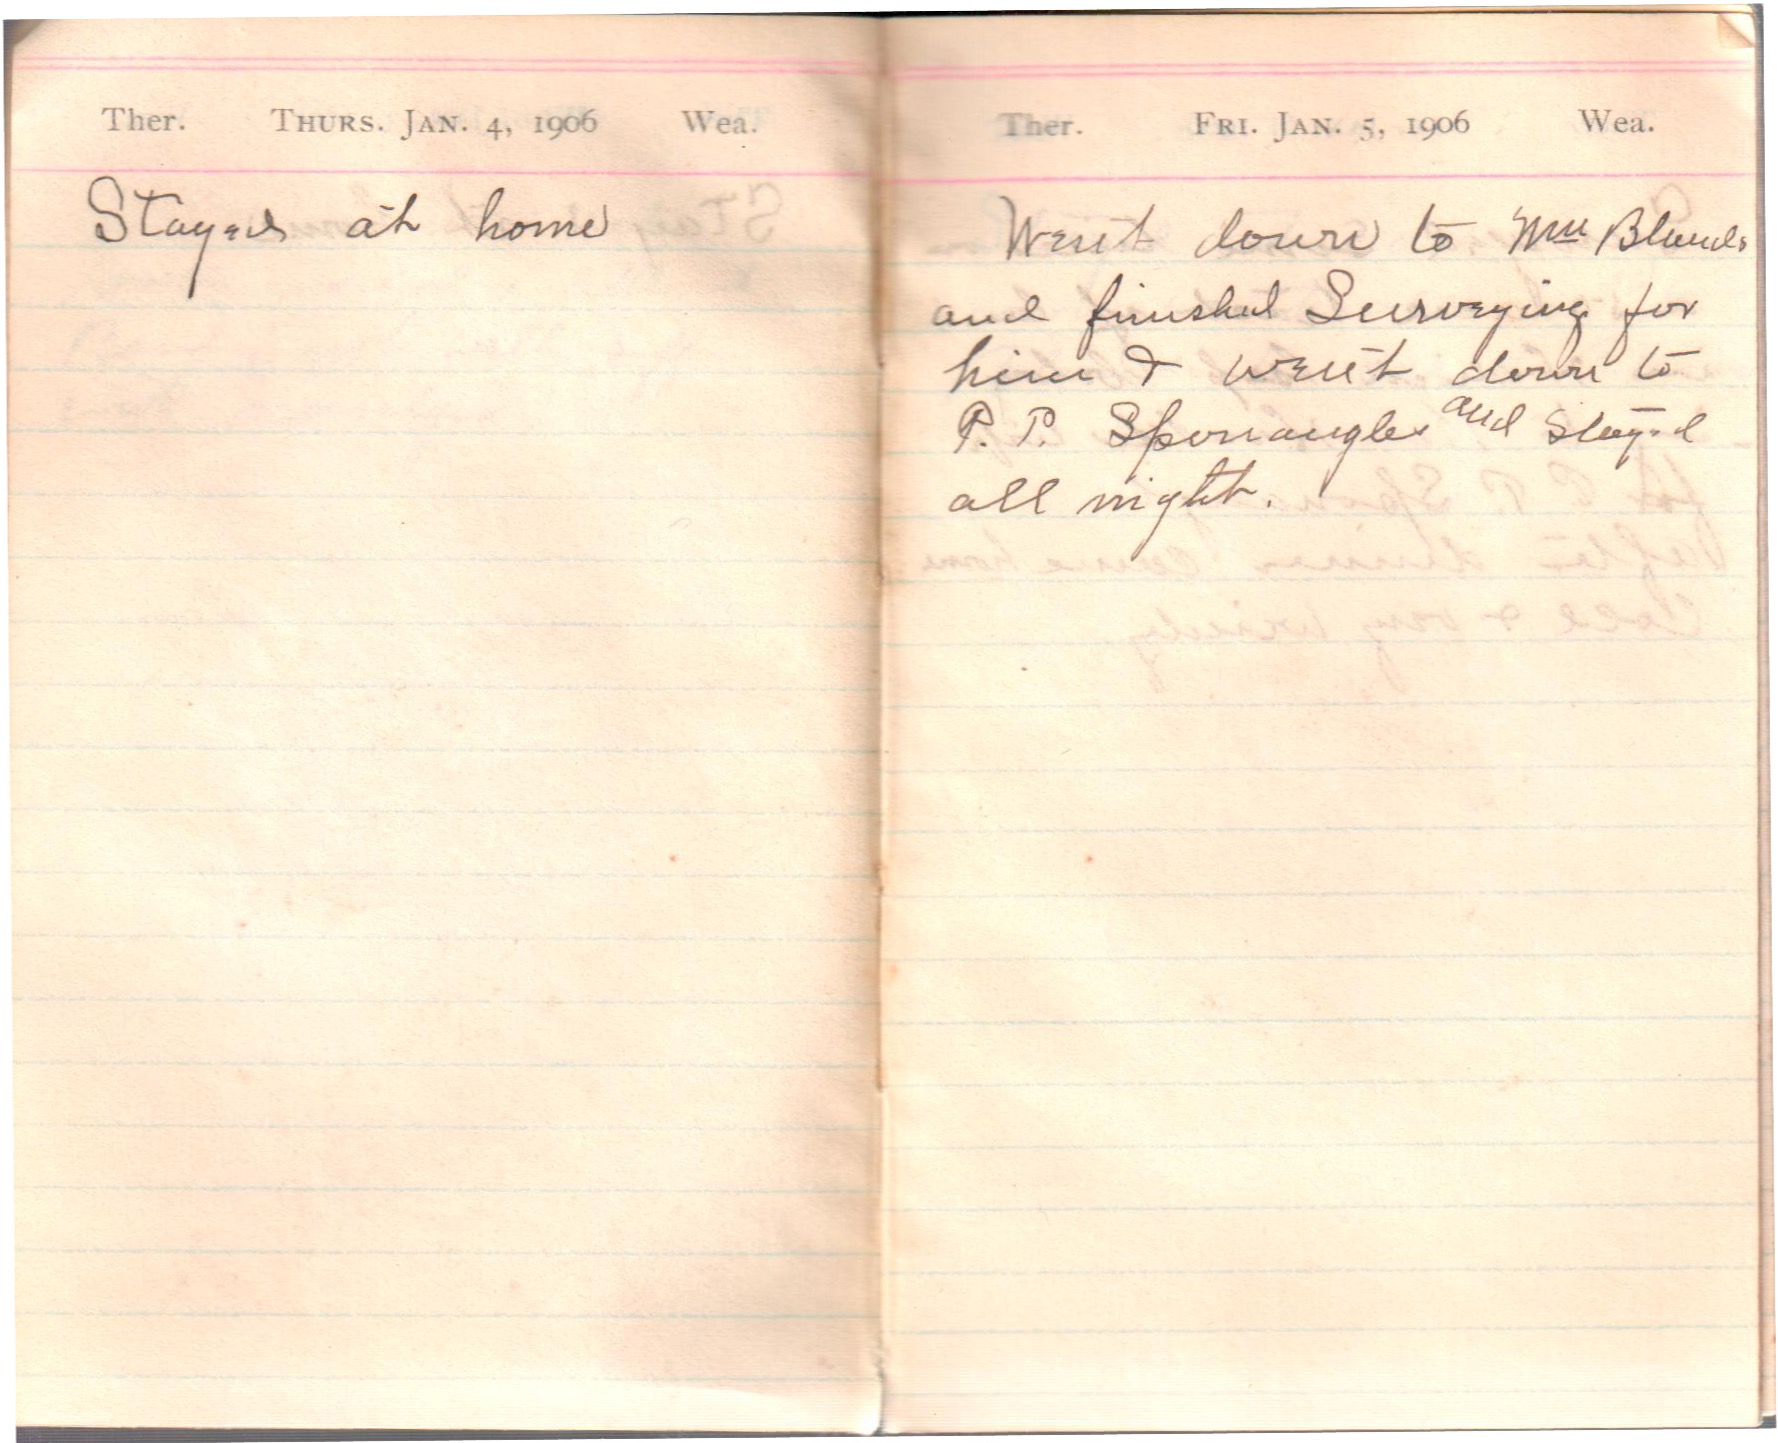 Ther. THURS. JAN. 4, 1906 Wea.
Stayed at home
Ther. FRI. JAN. 5, 1906 Wea.
Went down to Wm Blands
and finished Surveying for
him & went down to
P. P. Sponaugles and stayed
all night.